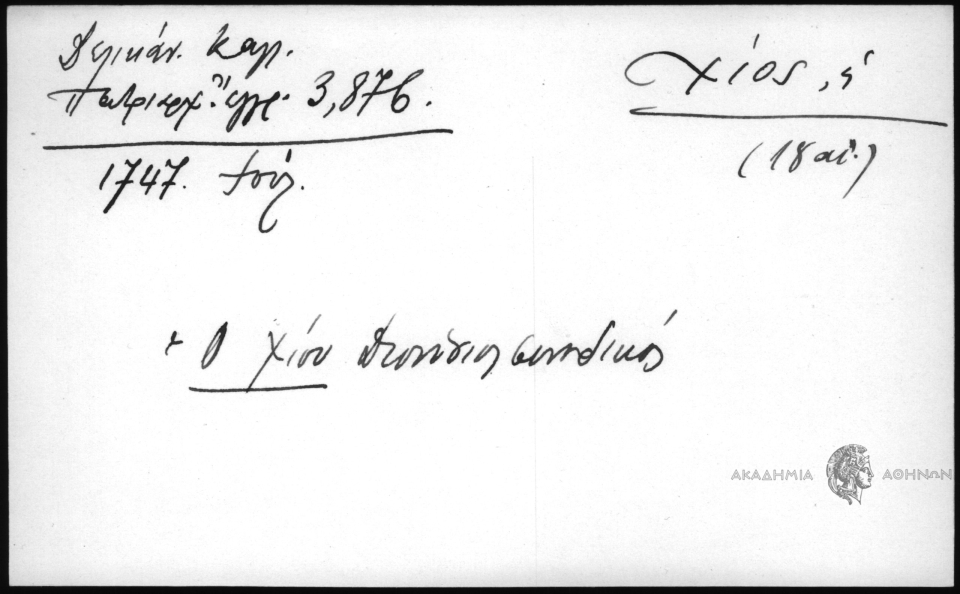 Δελικάν. Καλ.
Πατριαρχ. ἔγγρ. 3,876.
1747. Ἰούλ.
Χίος, ἡ
(18 αἰ.)
+ Ὁ Χίου Διονύσιος συνοδικός
ΑΚΑΔΗΜΙΑ ΑΘΗΝΩΝ